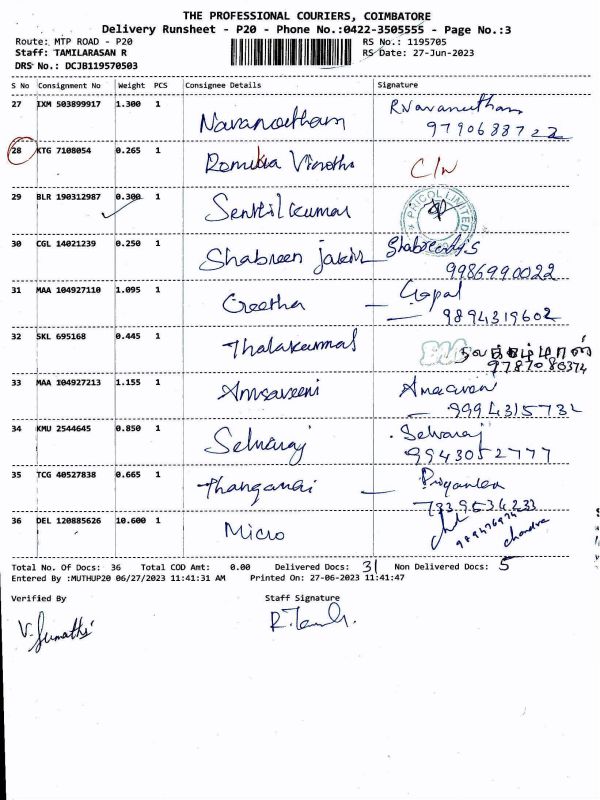 THE PROFESSIONAL COURIERS, COIMBATORE
Delivery Runsheet - P20 - Phone No.:0422-3505555 - Page No.:3
Route: MTP ROAD - P20 RS No.: 1195705
Staff: TAMILARASAN R RS Date: 27-Jun-2023
DRS No.: DCJB119570503
S No Consignment No Weight PCS Consignee Details Signature
27 IXM 503899917 1.300 1 Navaneetham R.Navaneetham
9790688722
28 KTG 7108054 0.265 1 Vinotha C/N
29 BLR 190312987 0.300 1 Senthil kumar PRICOL LIMITED
30 CGL 14021239 0.250 1 Shabreen
9986990022
31 MAA 104927110 1.095 1 Geetha — Gopal
— 9894319602
32 SKL 695168 0.445 1
33 MAA 104927213 1.155 1 Amsaveeni
— 9994315732
34 KMU 2544645 0.850 1 Selvaraj Selvaraj
9943052777
35 TCG 40527838 0.665 1 —
7339534233
36 DEL 120885626 10.600 1 Micro chandra
Total No. Of Docs: 36 Total COD Amt: 0.00 Delivered Docs: 31 Non Delivered Docs: 5
Entered By :MUTHUP20 06/27/2023 11:41:31 AM Printed On: 27-06-2023 11:41:47
Verified By Staff Signature
V. Sumathi